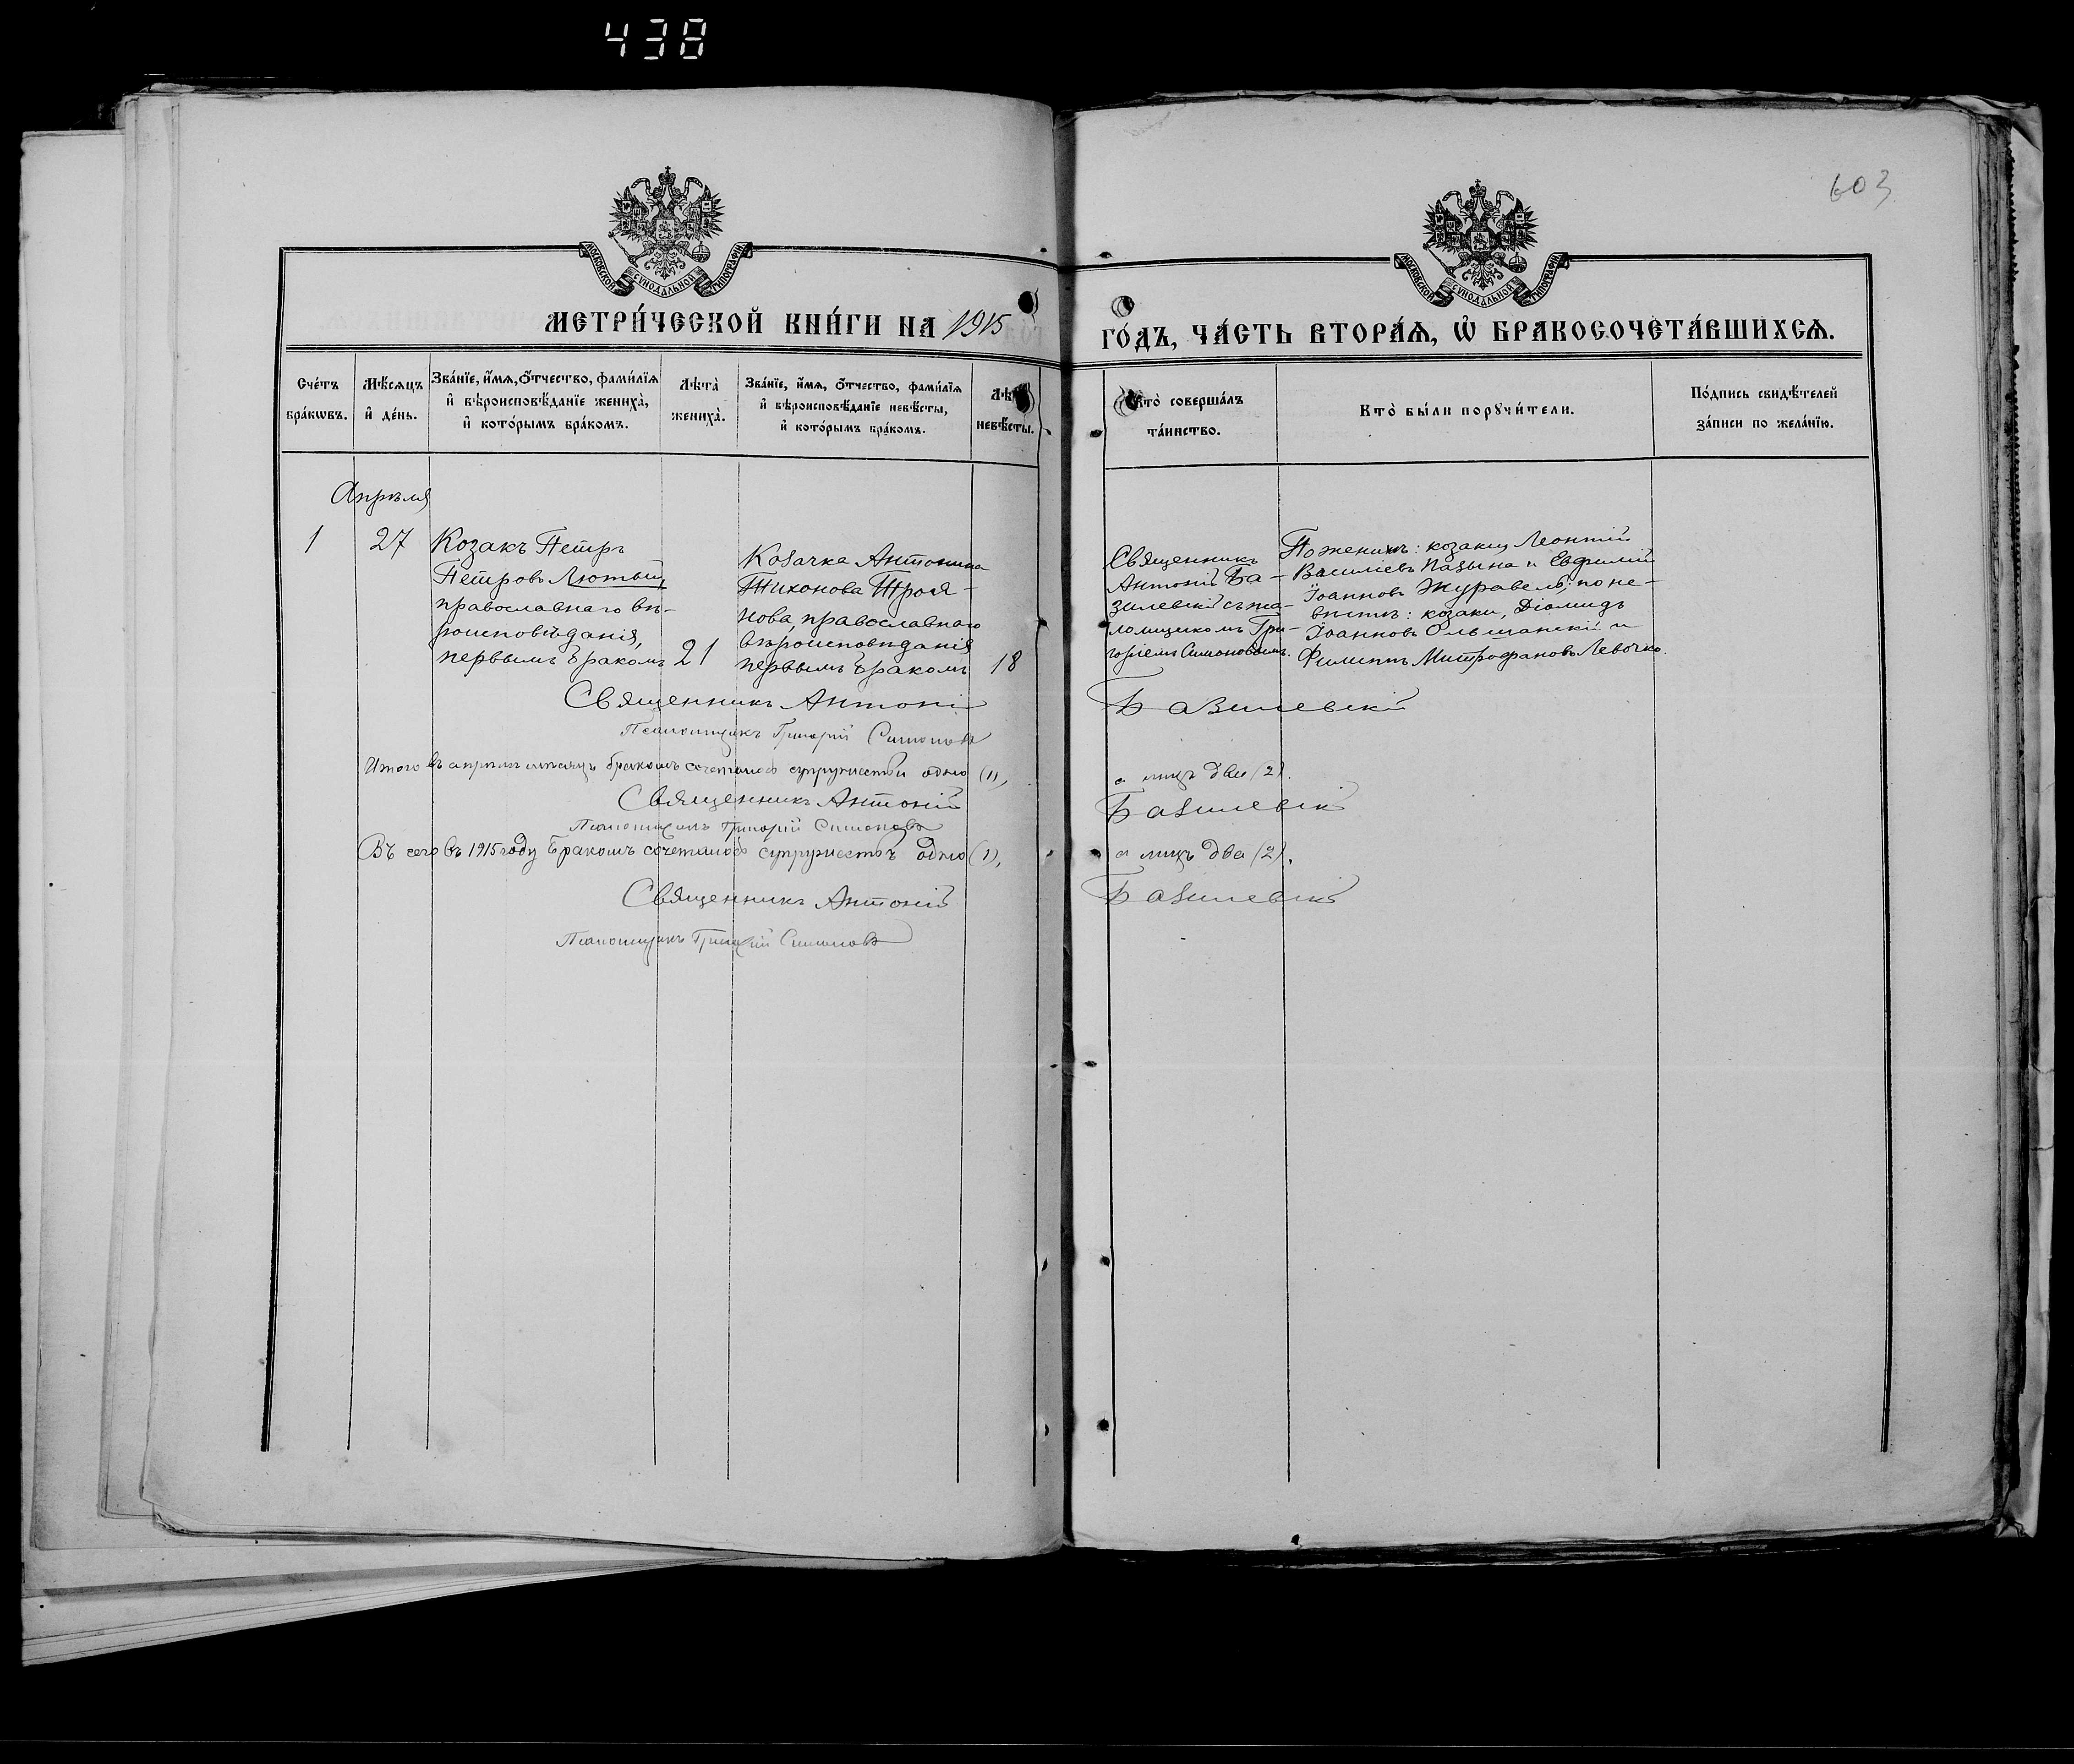 438
603
МОСКОВСКОЙ СѴНОДАЛЬНОЙ ТИПОГРАФІИ
МОСКОВСКОЙ СѴНОДАЛЬНОЙ ТИПОГРАФІИ
МЕТРИ́ЧЕСКОЙ КНИ́ГИ НА 1915
ГО́ДЪ, ЧА́СТЬ ВТОРА́Ѧ, Ѡ҆ БРАКОСОЧЕТА́ВШИХСѦ.
Сче́тъ
бра́кѡвъ.
Мѣ́сяцъ
и҆ де́нь.
Зва́нїе, и҆́мѧ, Ѻ҆́тчество, фами́лїѧ
и҆ вѣроисповѣ́данїе жениха̀,
и҆ кото́рымъ бра́комъ.
Лѣта̀
жениха̀.
Зва́нїе, и҆́мѧ, ѻ҆́тчество, фами́лїѧ
и҆ вѣроисповѣ́данїе невѣ́сты,
и҆ кото́рымъ бра́комъ.
невѣ́сты.
Кто̀ соверша́лъ
та́инство.
Кто̀ бы́ли порꙋчи́тели.
По́дпись свидѣ́телей
за́писи по жела́нїю.
Апрѣля
1
27
Козакъ Петръ
Петровъ Лютый
православнаго вѣ-
роисповѣданія,
первымъ бракомъ
21
Козачка Антонина
Тихонова Троя-
нова, православнаго
вѣроисповѣданія
первымъ бракомъ
18
Священникъ
Антоній Ба-
зилевскій съ пса-
ломщикомъ Гри-
горіемъ Симоновымъ.
По женихѣ: козаки Леонтій
Василіевъ Пазына и Евфимій
Іоанновъ Журавель; по не-
вѣстѣ: козаки, Діомидъ
Іоанновъ Ольшанскій и
Филиппъ Митрофановъ Левочко.
Священникъ Антоній Базилевскій
Псаломщикъ Григорій Симоновъ
Итого въ апрѣлѣ мѣсяцѣ бракомъ сочеталось супружествъ одно (1), а лицъ два (2).
Священникъ Антоній Базилевскій
Псаломщикъ Григорій Симоновъ
Въ сего въ 1915 году бракомъ сочеталось супружествъ одно (1), а лицъ два (2).
Священникъ Антоній Базилевскій
Псаломщикъ Григорій Симоновъ